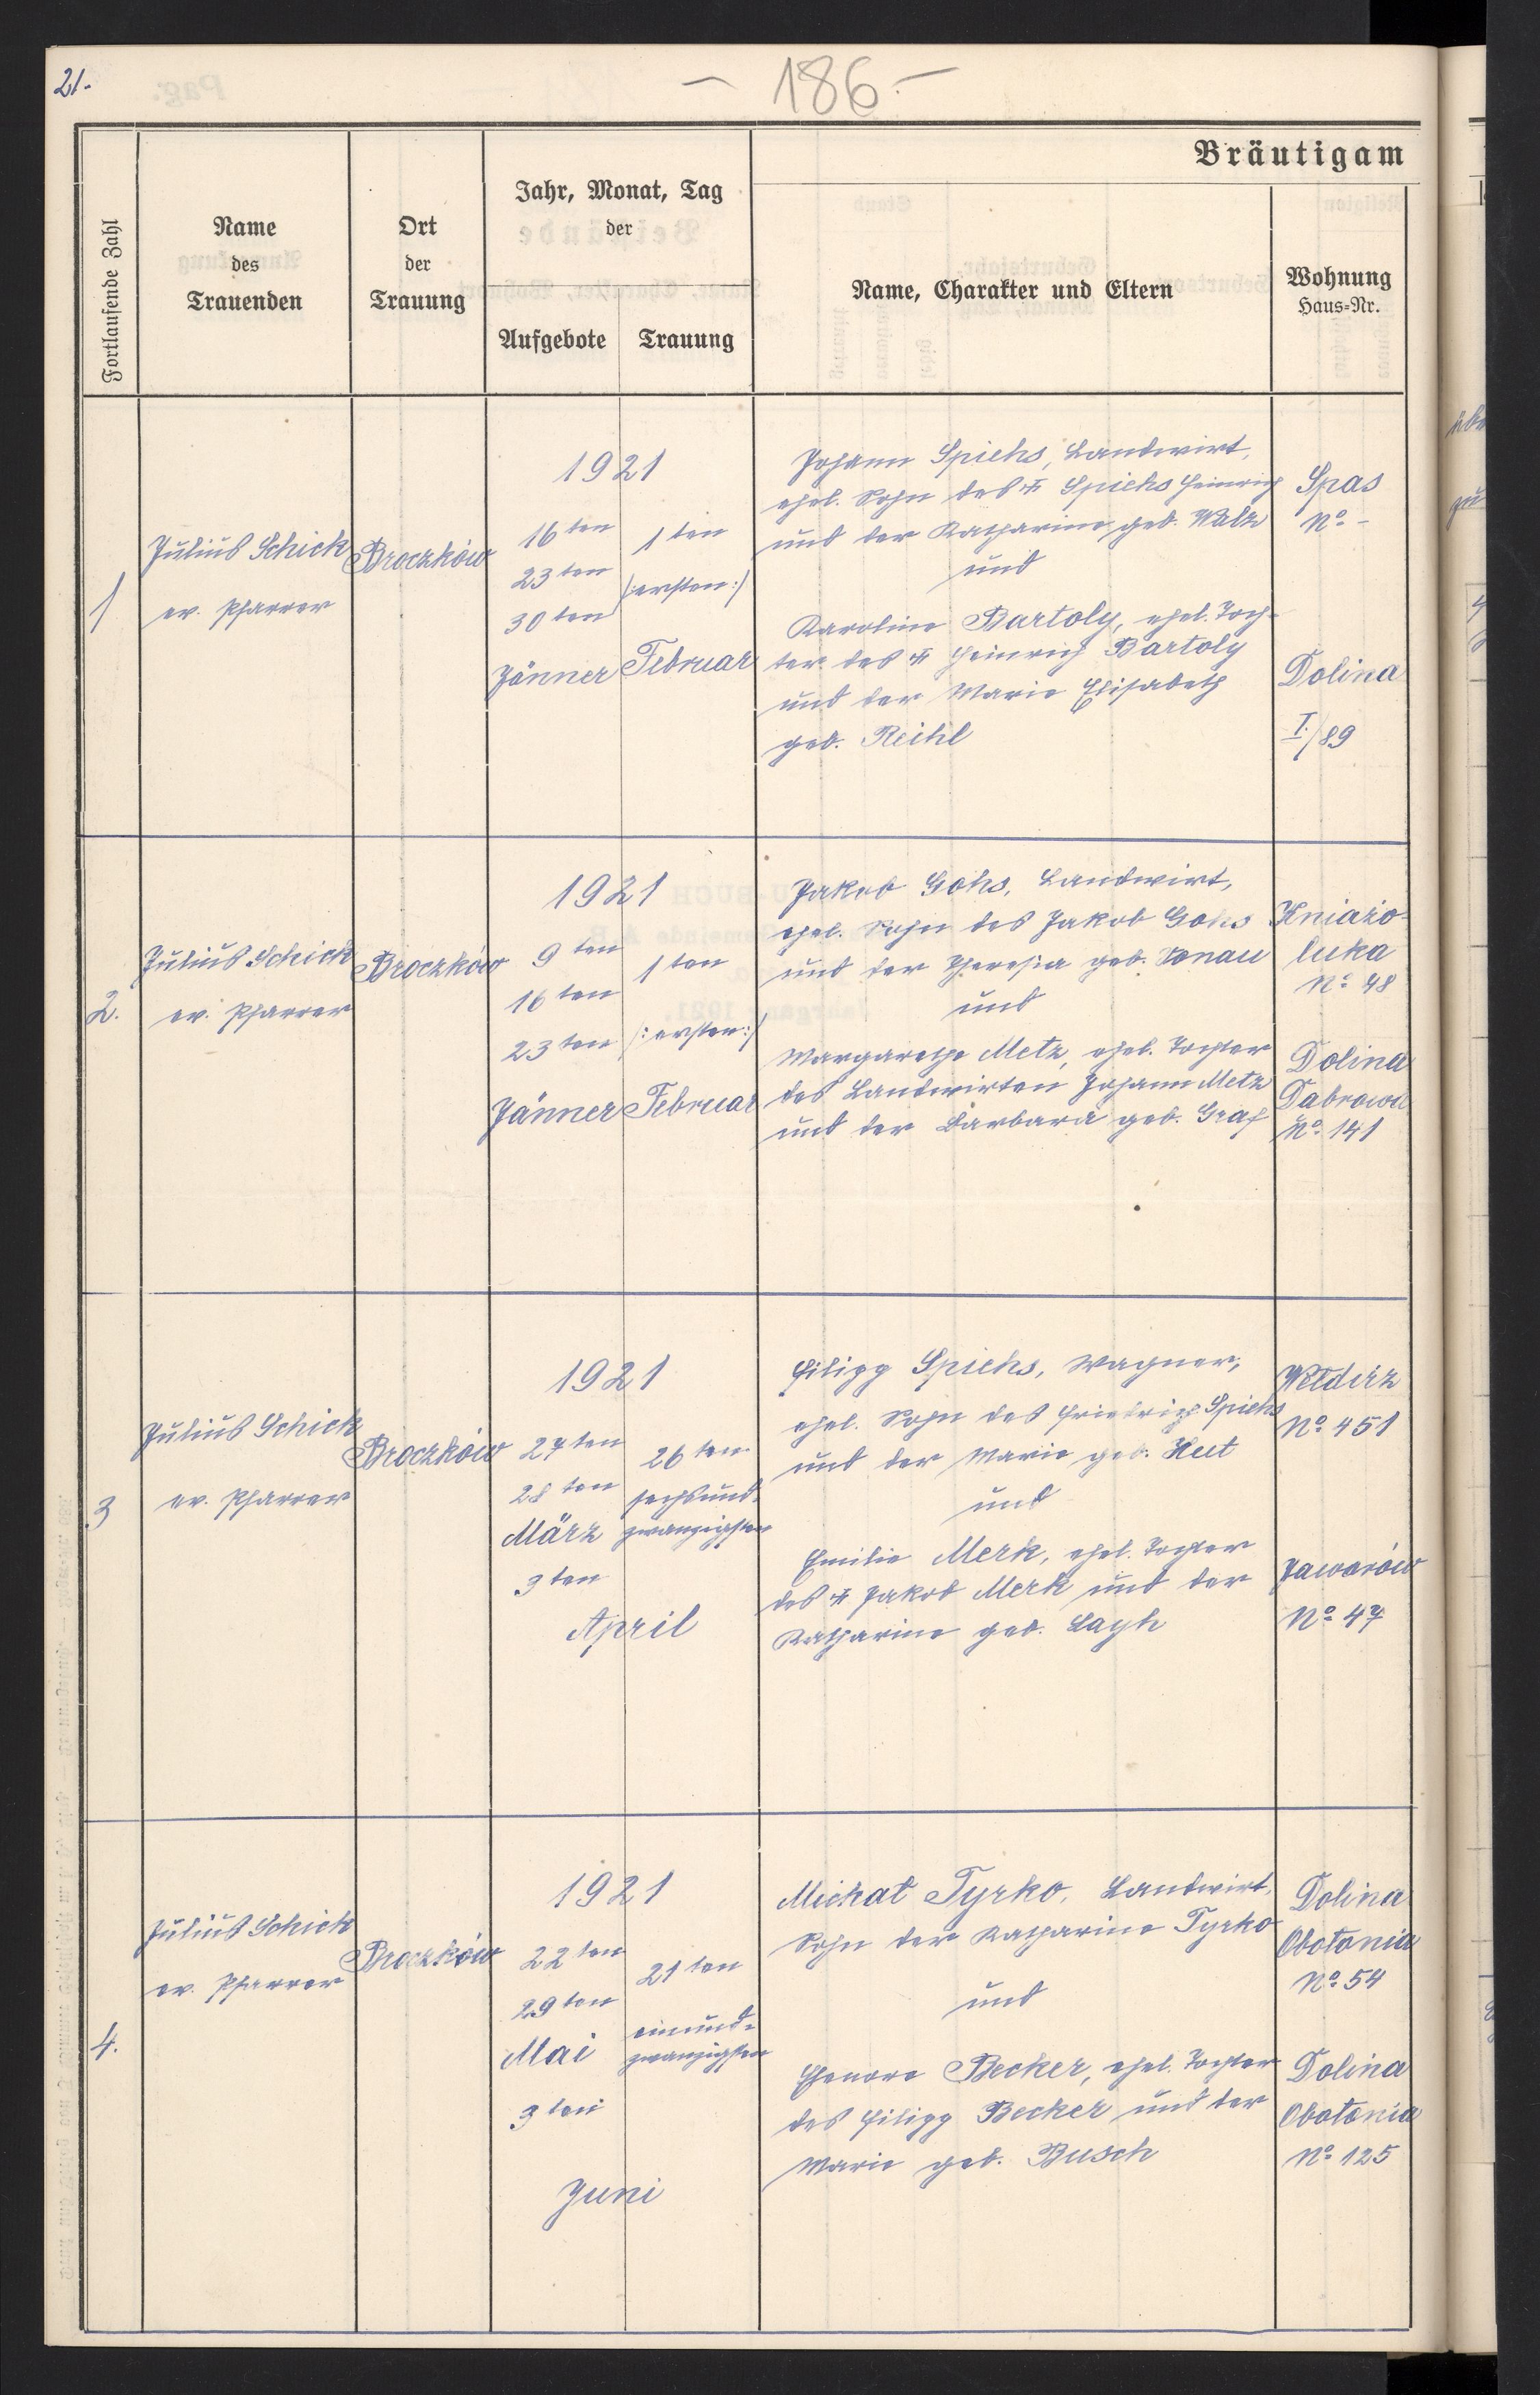 21.
- 186 -
Bräutigam
Fortlaufende Zahl
Name
des
Trauenden
Ort
der
Trauung
Jahr, Monat, Tag
der
Aufgebote
Trauung
Name, Charakter und Eltern
Wohnung
Haus=Nr.
1
Julius Schick
ev. Pfarrer
Broczków
1921
16ten
23ten
30ten
Jänner
1ten
(:ersten:)
Februar
Johann Spiehs, Landwirt,
ehel. Sohn des Spiehs Heinrich
und der Katharina geb. Walz
und
Karolina Bartoly, ehel. Toch-
ter des Heinrich Bartoly
und der Marie Elisabeth
geb. Reihl
Spas
No -
Dolina
I./89
2.
Julius Schick
ev. Pfarrer
Broczków
1921
9ten
16ten
23ten
Jänner
1ten
(:ersten:)
Februar
Jakob Gohs, Landwirt,
ehel. Sohn des Jakob Gohs
und der Theresia geb. Konau
und
Margarethe Metz, ehel. Tochter
des Landwirten Johann Metz
und der Barbara geb. Graf
Kniażo-
luka
No 48
Dolina
Dabrowa
No 141
3
Julius Schick
ev. Pfarrer
Broczków
1921
27ten
28ten
März
3ten
April
26ten
sechsund-
zwanzigsten
Filipp Spiehs, Wagner,
ehel. Sohn des Friedrich Spiehs
und der Marie geb. Hut
und
Emilie Merk, ehel. Tochter
des Jakob Merk und der
Katharina geb. Laph
Wełdirz
No 451
Jaworów
No 47
4.
Julius Schick
ev. Pfarrer
Broczków
1921
22ten
29ten
Mai
3ten
Juni
21ten
einund-
zwanzigsten
Michał Tyrko, Landwirt,
Sohn der Katharina Tyrko
und
Becker, ehel. Tochter
des Filipp Becker und der
Marie geb. Busch
Dolina
Obołonia
No 54
Dolina
Obołonia
No 125